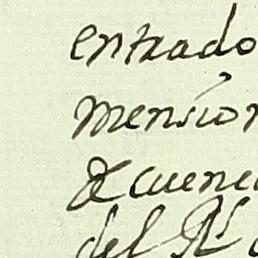 entrado
mension
de cuenc
del Rl